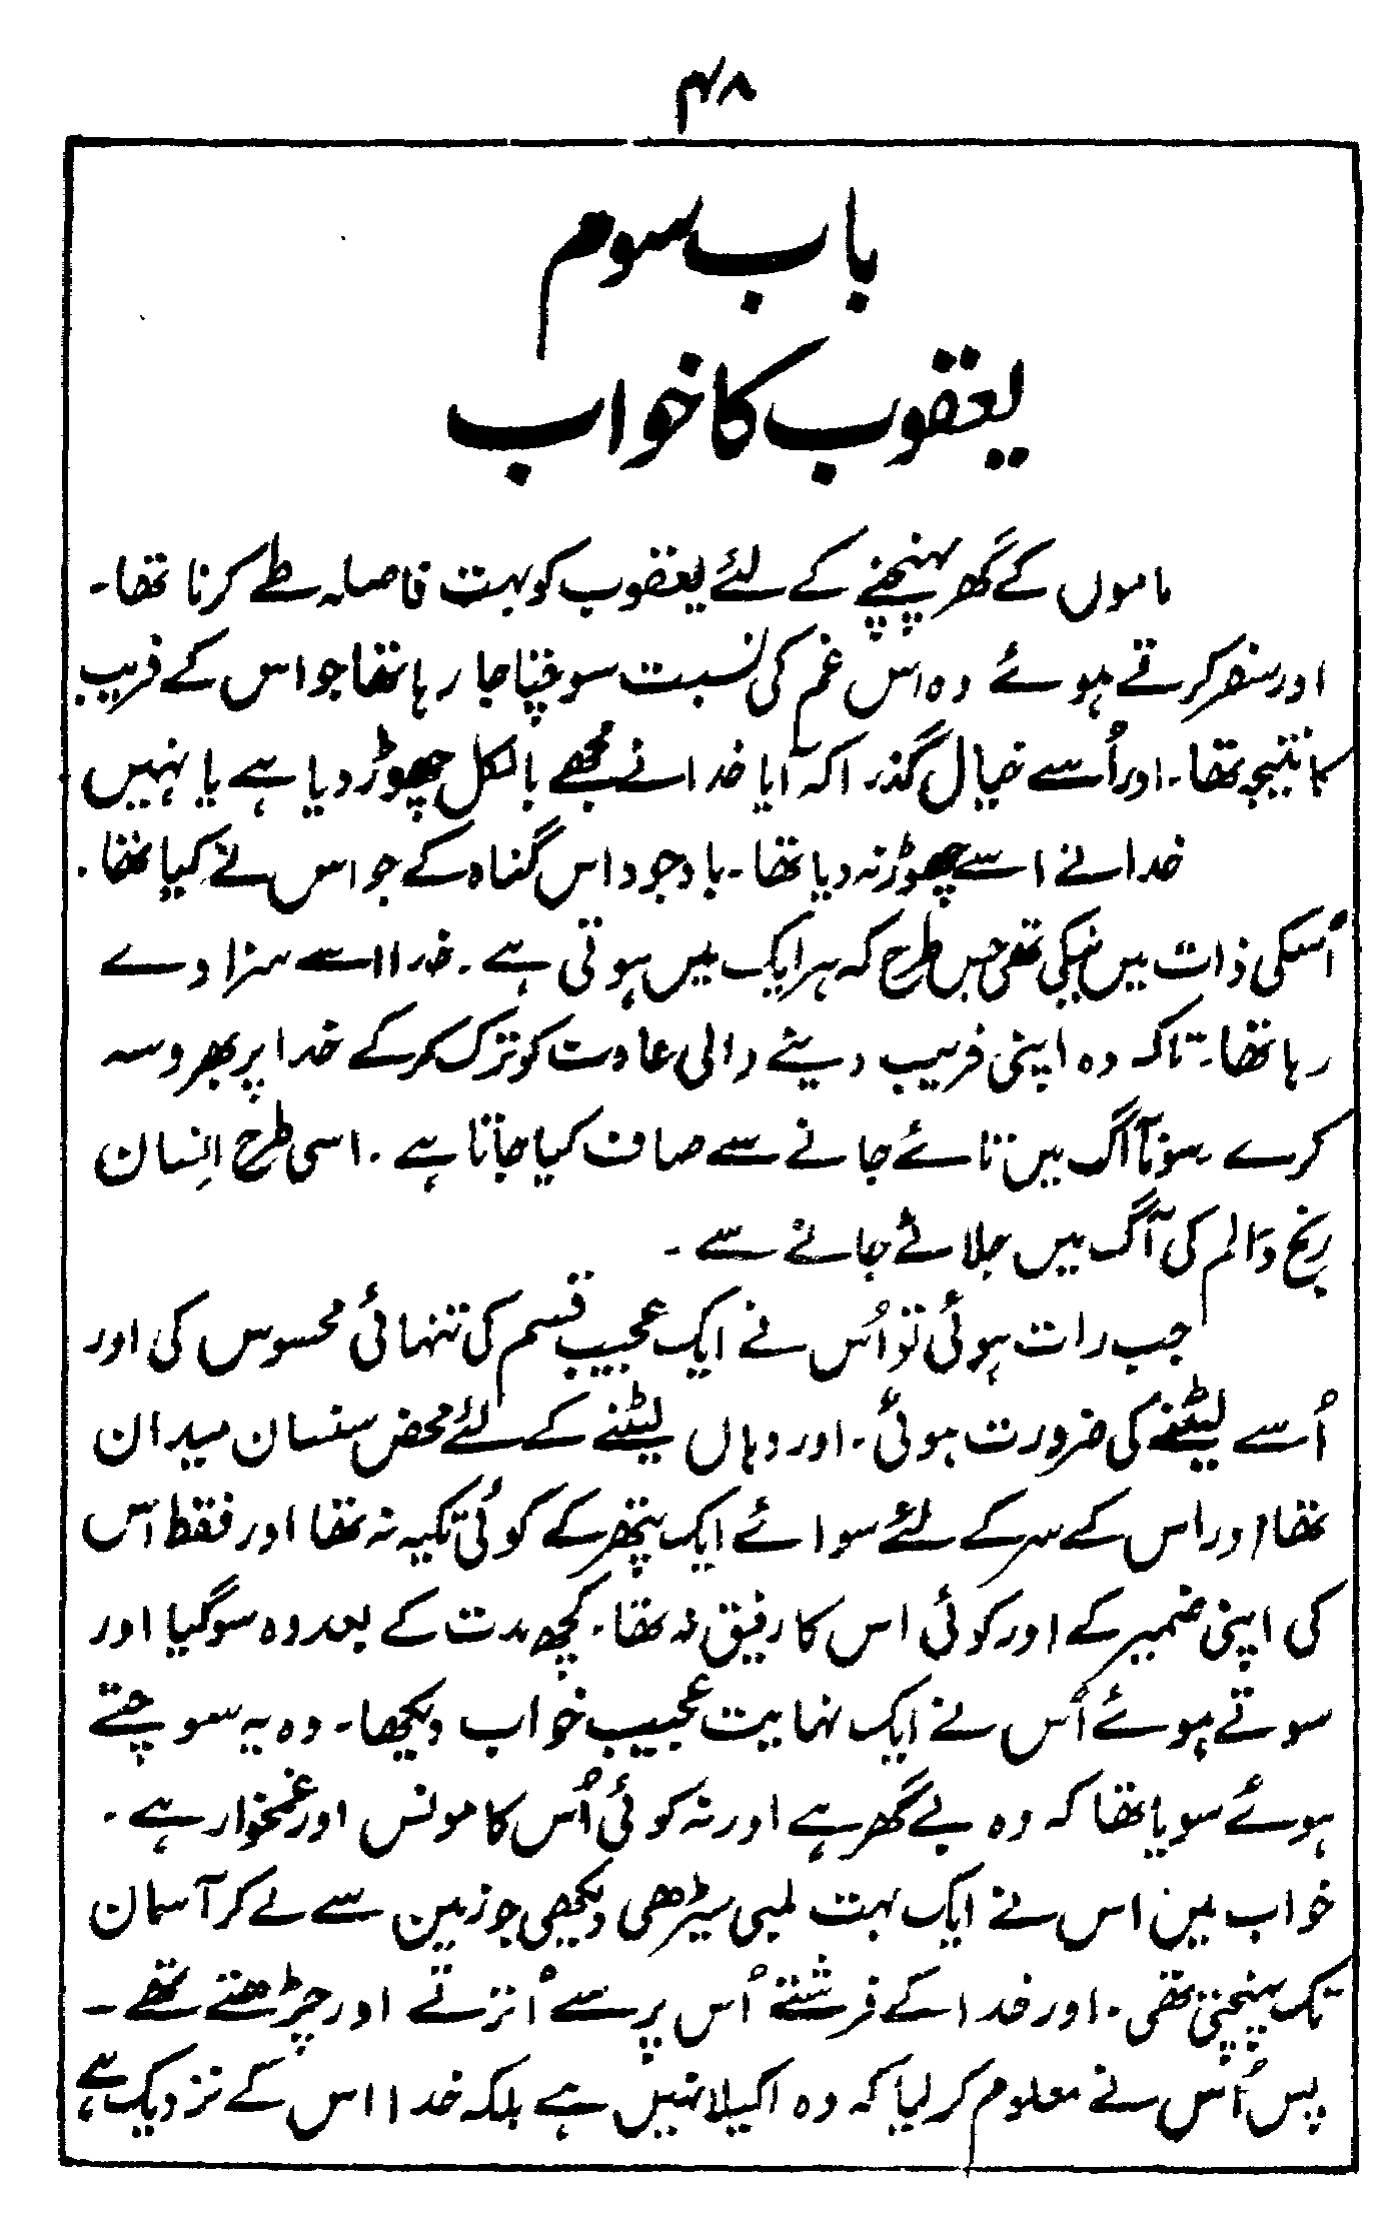 ۴۸
باب سوم
یعقوب کا خواب
ماموں کے گھر پہنچنے کے لئے یعقوب کو بہت فاصلہ طے کرنا تھا۔
اور سفر کرتے ہوئے وہ اس غم کی نسبت سوچتا جا رہا تھا جو اس کے فریب
کا نتیجہ تھا۔ اور اُسے خیال گذرا کہ آیا خدا نے مجھے بالکل چھوڑ دیا ہے یا نہیں
خدا نے اسے چھوڑ نہ دیا تھا۔ باوجود اس گناہ کے جو اس نے کیا تھا۔
اُسکی ذات میں نیکی تھی جس طرح کہ ہر ایک میں ہوتی ہے۔ خدا اسے سزا دے
رہا تھا۔ تاکہ وہ اپنی فریب دینے والی عادت کو ترک کرکے خدا پر بھروسہ
کرے۔ سونا آگ میں تائے جانے سے صاف کیا جاتا ہے۔ اسی طرح اِنسان
رنج و الم کی آگ میں جلائے جانے سے۔
جب رات ہوئی تو اُس نے ایک عجیب قسم کی تنہائی محسوس کی اور
اُسے لیٹنے کی ضرورت ہوئی۔ اور وہاں لیٹنے کے لئے محض سنسان میدان
تھا اور اس کے سر کے لئے سوائے ایک پتھر کے کوئی تکیہ نہ تھا اور فقط اس
کی اپنی ضمیر کے اور کوئی اس کا رفیق نہ تھا۔ کچھ مدت کے بعد وہ سو گیا اور
سوتے ہوئے اُس نے ایک نہایت عجیب خواب دیکھا۔ وہ یہ سوچتے
ہوئے سویا تھا کہ وہ بے گھر ہے اور نہ کوئی اُس کا مونس اور غمخوار ہے۔
خواب میں اس نے ایک بہت لمبی سیڑھی دیکھی جو زمین سے لے کر آسمان
تک پہنچتی تھی۔ اور خدا کے فرشتے اُس پر سے اُترتے اور چڑھتے تھے۔
پس اُس نے معلوم کر لیا کہ وہ اکیلا نہیں ہے بلکہ خدا اس کے نزدیک ہے